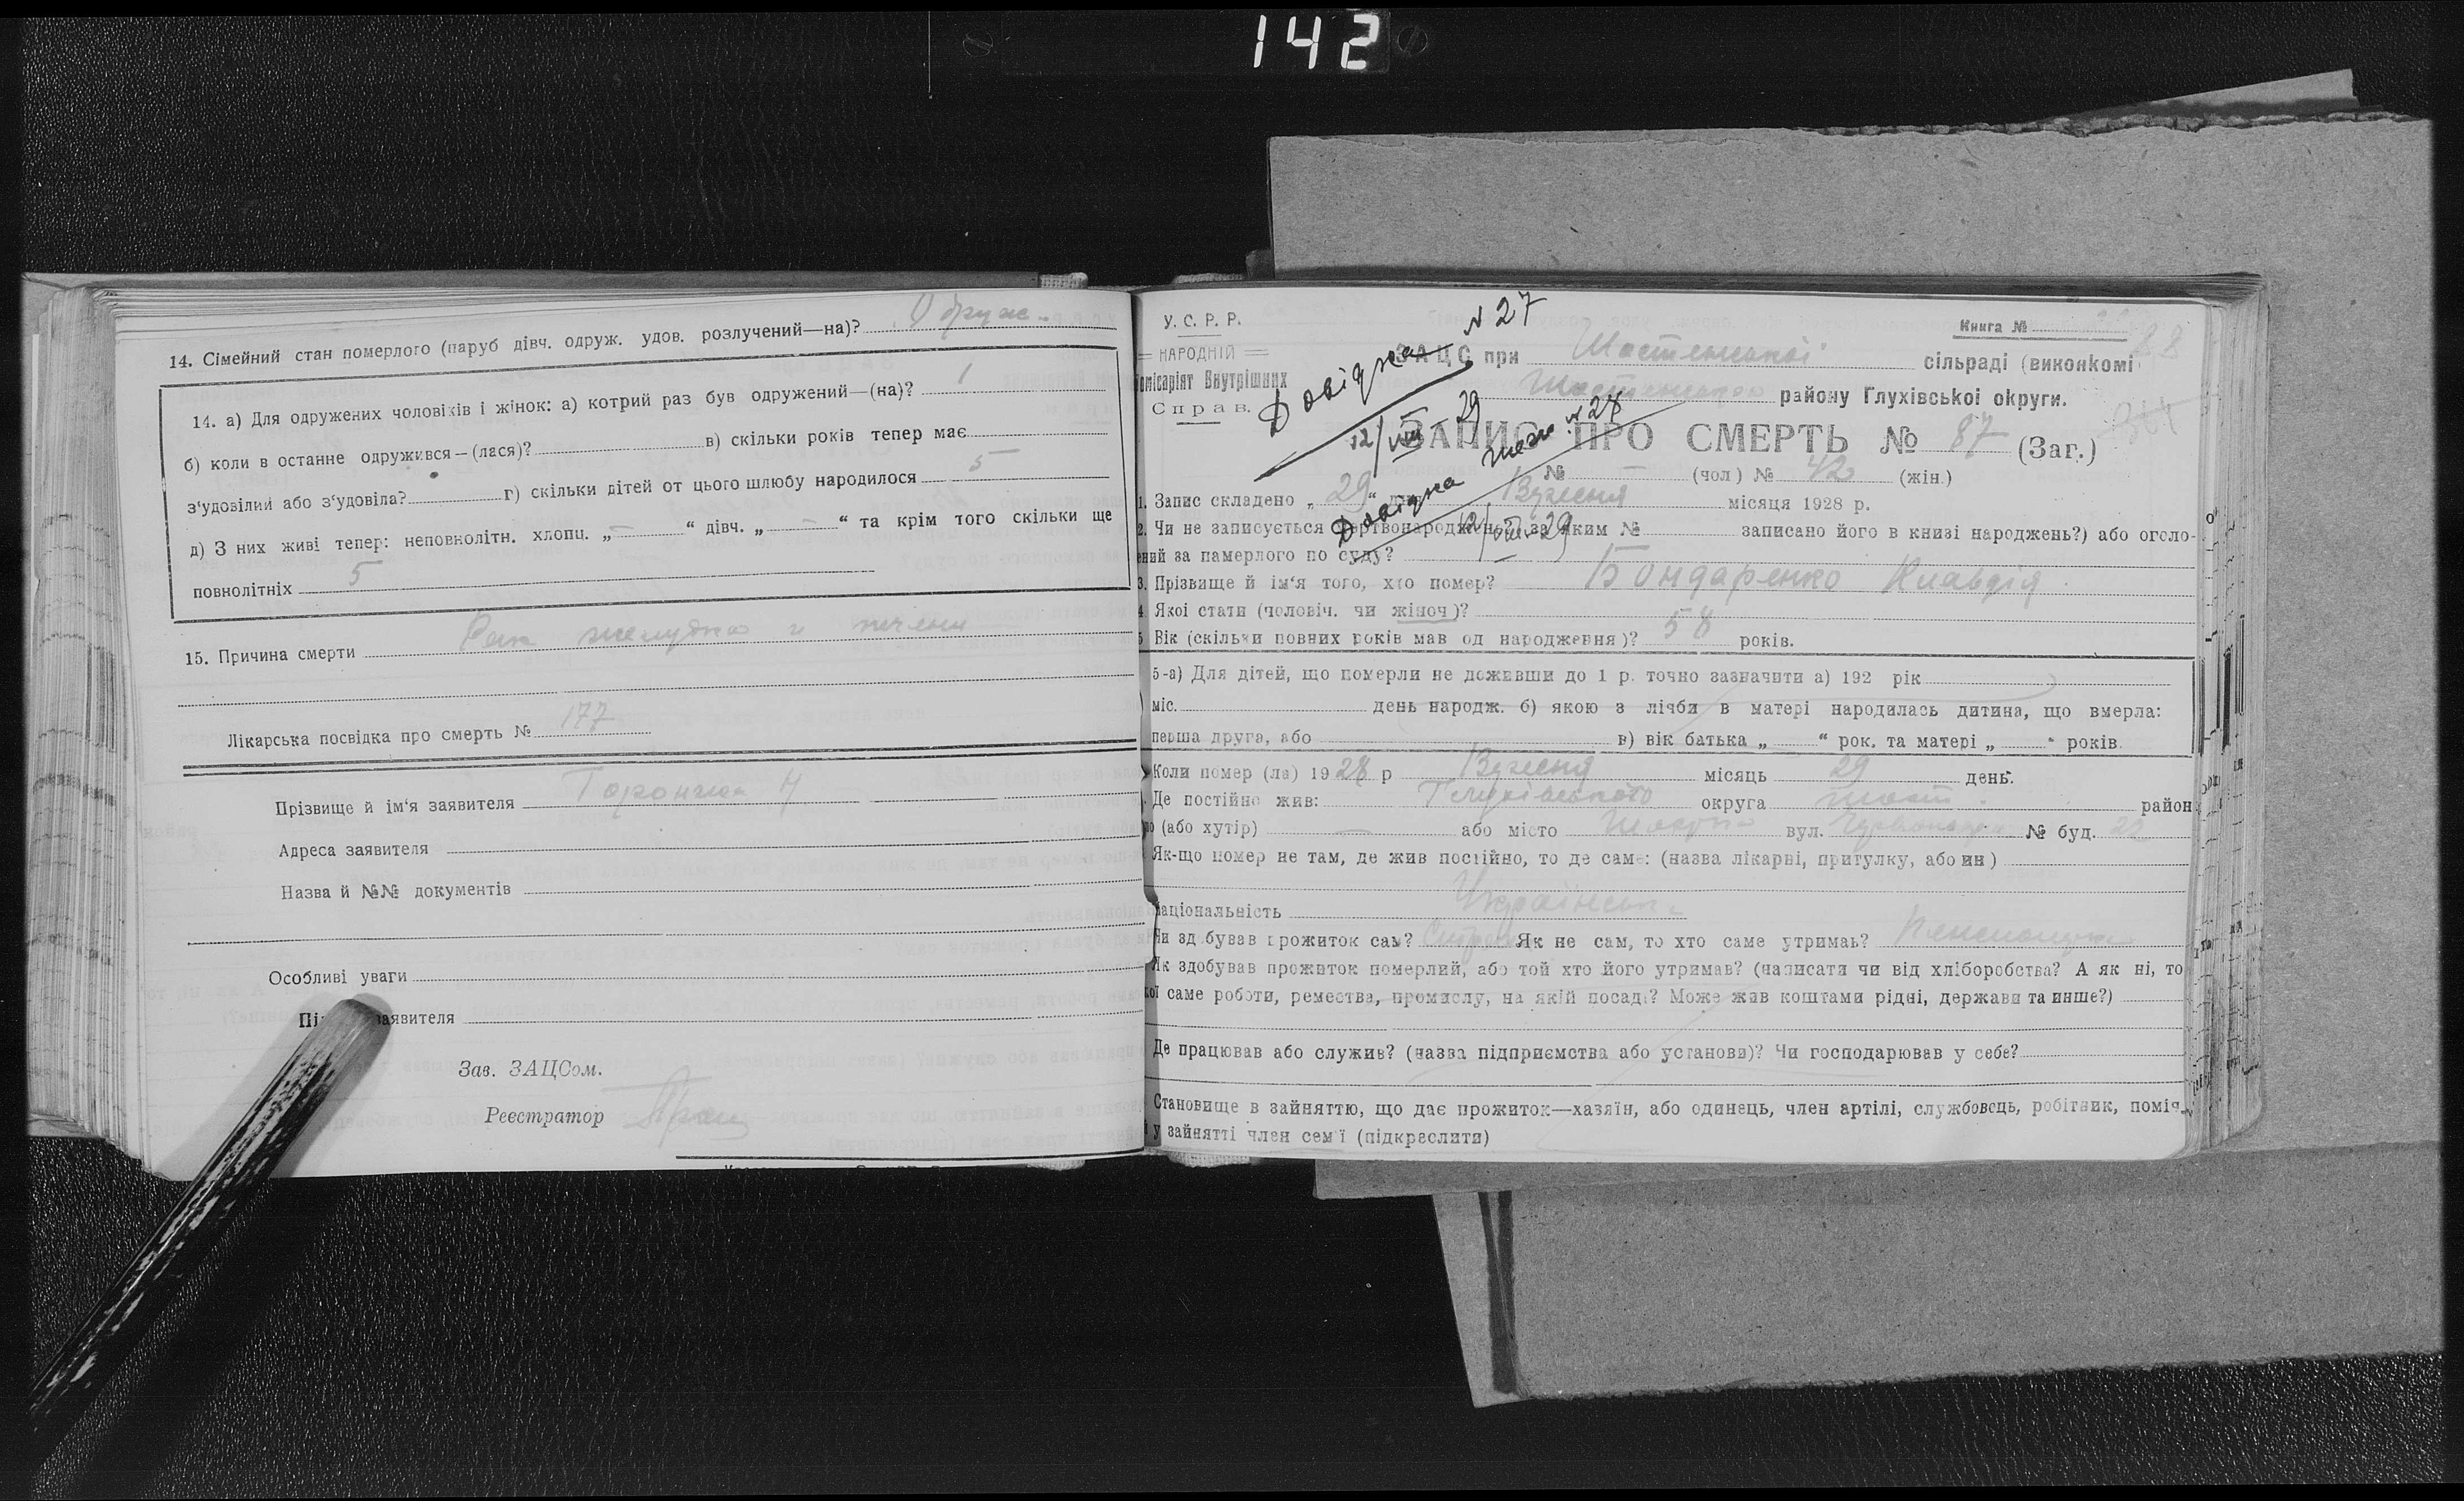 142
14. Сімейний стан померлого (паруб дівч. одруж. удов. розлучений—на)? Одруж.
14. а) Для одружених чоловіків і жінок: а) котрий раз був одружений—(на)? 1
б) коли в останне одружився—(лася)? в) скільки років тепер має
з‘удовілий або з‘удовіла? г) скільки дітей от цього шлюбу народилося 5
д) З них живі тепер: неповнолітн. хлопц. „—“ дівч. „—“ та крім того скільки ще
повнолітніх 5
15. Причина смерти Рак желудка и печени
Лікарська посвідка про смерть № 177
Прізвище й ім‘я заявителя
Адреса заявителя
Назва й №№ документів
Особливі уваги
Пі заявителя
Зав. ЗАЦСом.
Реєстратор
У. С. Р. Р.
НАРОДНІЙ
омісаріят Внутрішних
Справ.
N 27
Довідка
12/VIII 29
Книга №
ЗАЦС при Шостенської сільраді (виконкомі
Шостенського району Глухівської округи.
ЗАПИС ПРО СМЕРТЬ № 87 (Заг.)
№ — (чол) № 42 (жін.)
Довідка тоже N 28
12/VIII-29
1. Запис складено „29“ дня Вересня місяця 1928 р.
2. Чи не записується мертвонароджений за яким № записано його в книзі народжень?) або оголо-
ений за памерлого по суду?
3. Прізвище й ім‘я того, хто помер? Бондаренко Клавдія
4 Якої стати (чоловіч. чи жіноч)?
5 Вік (скільки повних років мав од народження)? 58 років.
5-а) Для дітей, що померли не доживши до 1 р. точно зазначити а) 192 рік
міс. день народж. б) якою з лічби в матері народилась дитина, що вмерла:
перша друга, або в) вік батька „ “ рок. та матері „ “ років.
Коли помер (ла) 1928 р Вересня місяць 29 день.
Де постійно жив: Глухівського округа Шост. район
(або хутір) — або місто Шостка вул. № буд. 22
Як-що помер не там, де жив постійно, то де саме: (назва лікарні, притулку, або ин)
аціональність Українська
Чи здобував прожиток сам? Як не сам, то хто саме утримаь?
Як здобував прожиток померлий, або той хто його утримав? (написати чи від хліборобства? А як ні, то
кої саме роботи, ремества, промислу, на якій посаді? Може жив коштами рідні, держави та инше?)
Де працював або служив? (назва підприємства або установи)? Чи господарював у себе?
Становище в зайняттю, що дає прожиток—хазяїн, або одинець, член артілі, службовець, робітник, поміч
у зайнятті член сем‘ї (підкреслити)